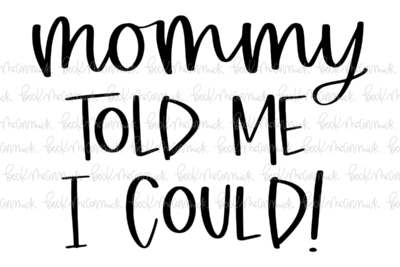 mommy
TOLD ME
I COULD!